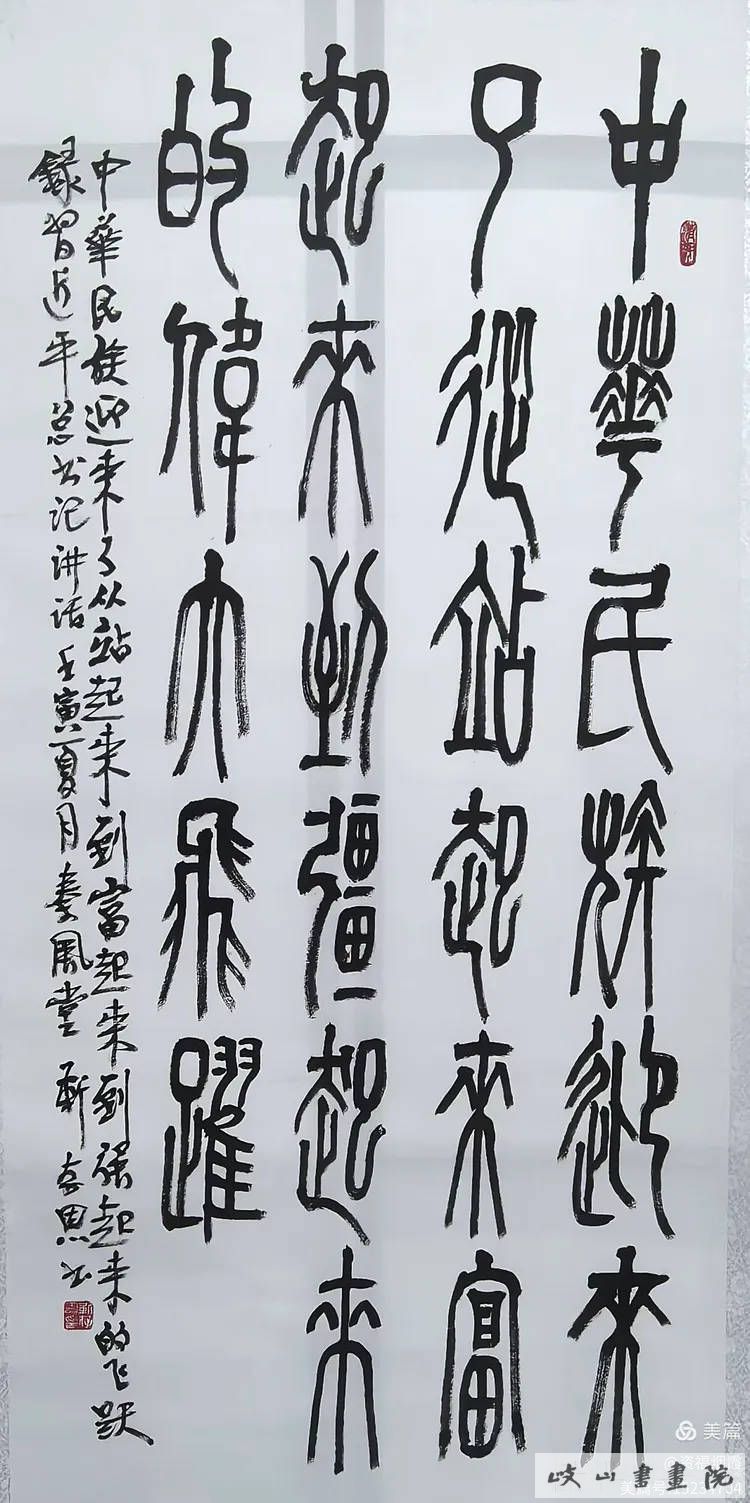 中華民族迎来
了從站起来富
起来到彊起来
的偉大飛躍
中華民族迎来了从站起来到富起来到强起来的飞跃
録習近平总书记讲话壬寅夏月秦風堂靳存思书
美篇
美篇号
岐山書畫院